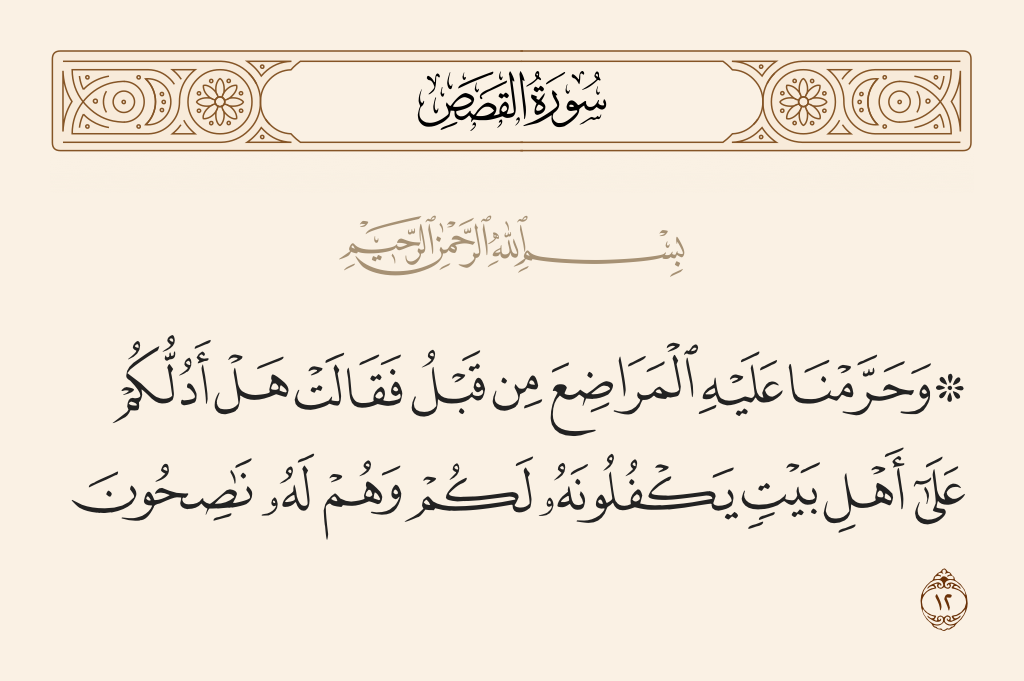 سُورَةُ القَصَصِ
بِسْمِ ٱللَّهِ ٱلرَّحْمَٰنِ ٱلرَّحِيمِ
۞ وَحَرَّمْنَا عَلَيْهِ ٱلْمَرَاضِعَ مِن قَبْلُ فَقَالَتْ هَلْ أَدُلُّكُمْ
عَلَىٰٓ أَهْلِ بَيْتٍ يَكْفُلُونَهُۥ لَكُمْ وَهُمْ لَهُۥ نَٰصِحُونَ
١٢